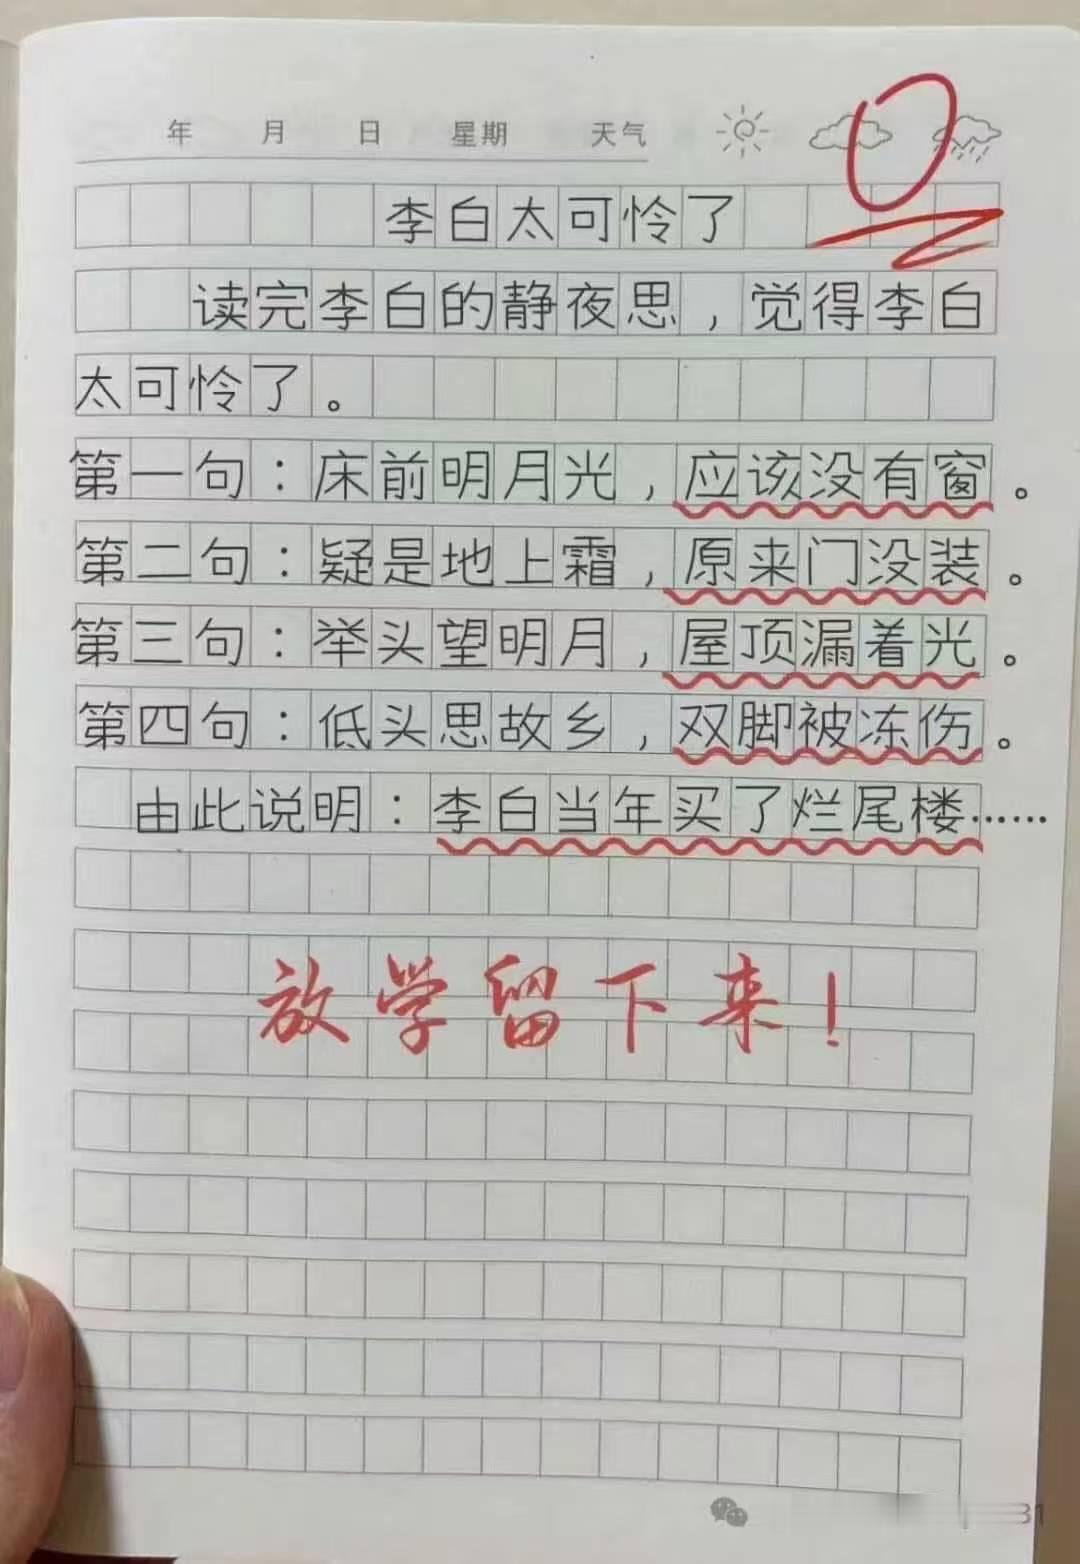 年 月 日 星期 天气
0
李白太可怜了
读完李白的静夜思，觉得李白
太可怜了。
第一句：床前明月光，应该没有窗。
第二句：疑是地上霜，原来门没装。
第三句：举头望明月，屋顶漏着光。
第四句：低头思故乡，双脚被冻伤。
由此说明：李白当年买了烂尾楼……
放学留下来！